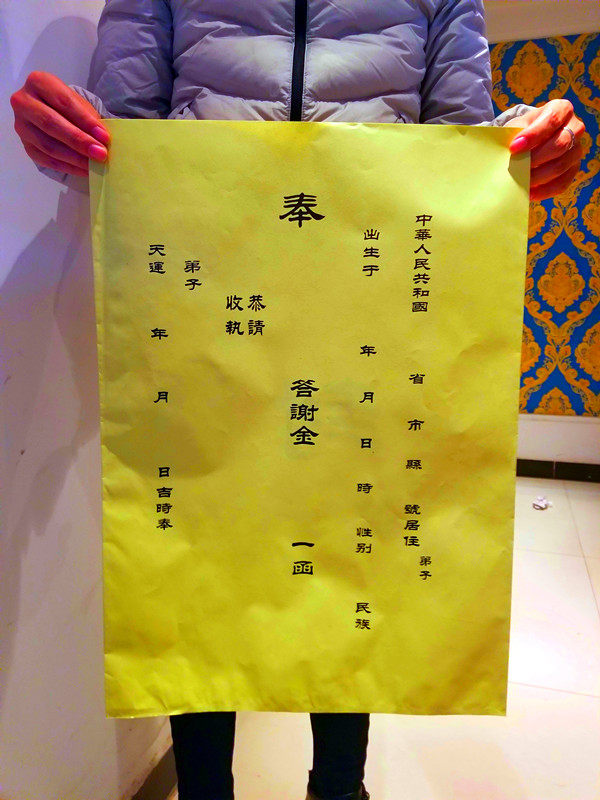 中華人民共和國 省 市 縣 號居住 弟子
出生于 年 月 日 時 性别 民族
奉 答謝金 一函
恭請
收執
弟子
天運 年 月 日吉時奉